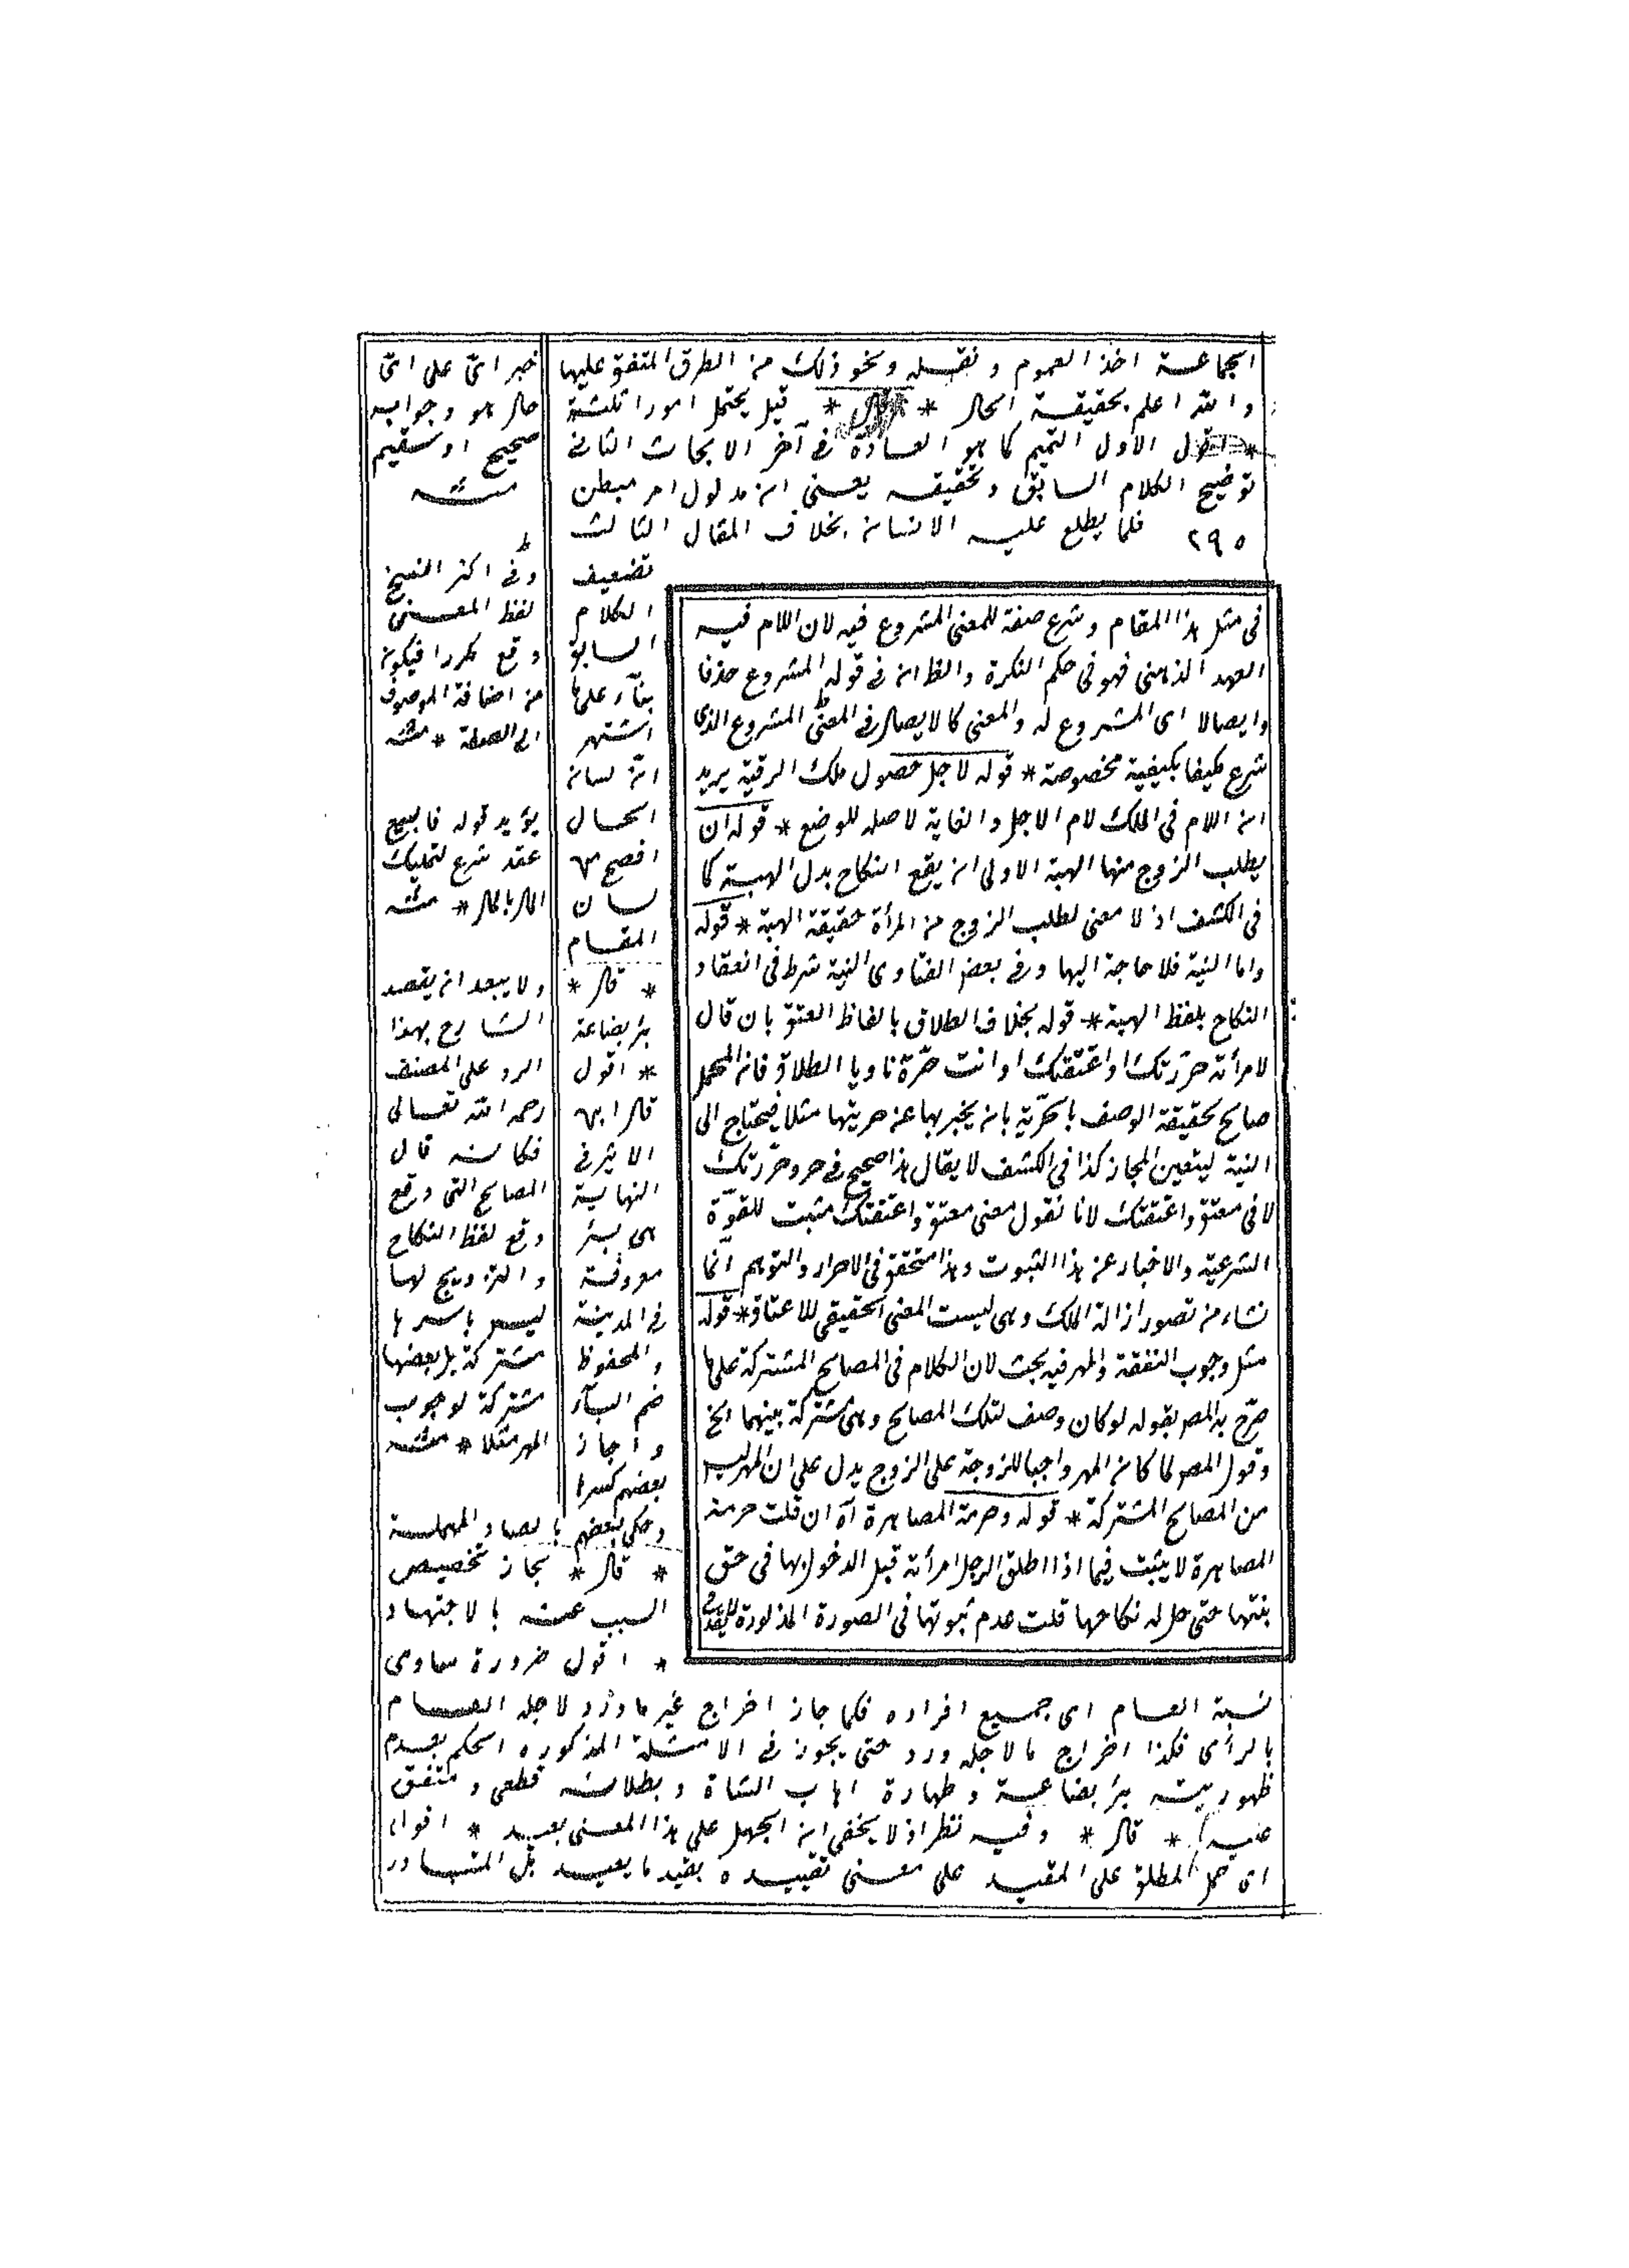 الجماعة اخذ العموم و نقله ونحو ذلك من الطرق المتفق عليها
والله اعلم بحقيقة الحال * قال * قيل يحتمل امورا ثلثة
* اقول الاول التميم كما هو العادة فى آخر الابحاث الثانى
توضيح الكلام السابق وتحقيقه يعنى ان مدلول امر مبطن
٢٩٥ فلما يطلع عليه الانسان بخلاف المقال الثالث
تضعيف
الكلام
السابق
بناء على ما
اشتهر
ان لسان
الحال
افصح من
لسان
المقام
* قال *
بئر بضاعة
* اقول
قال ابن
الاثير فى
النهاية
هى بئر
معروفة
فى المدينة
والمحفوظ
ضم الباء
واجاز
بعضهم كسرا
وحكى بعضهم بالصاد المهملة
* قال * بجاز تخصيص
السبب عنه بالاجتهاد
* اقول ضرورة مساوى
نسبة العام اى جميع افراده فكما جاز اخراج غير ما ورد لاجله العام
بالرأى فكذا اخراج ما لاجله ورد حتى يجوز فى الامثلة المذكوره الحكم بعدم
ظهوريته بئر بضاعة وطهارة اهاب الشاة وبطلانه قطعى ومتفق
عليه * قال * وفيه نظر اذ لا يخفى ان الجهل على هذا المعنى بعيد * اقول
اى حمل المطلق على المقيد على معنى تقييده بقيد ما بعيد بل المتبادر
فى مثل هذا المقام وشرع صفة للمعنى المشروع فيه لان اللام فيه
العهد الذهنى فهو فى حكم النكرة والظ ان فى قوله المشروع حذفا
وايصالا اى المشروع له والمعنى كالايصال فى المعنى المشروع الذى
شرع مكيفا بكيفية مخصوصة * قوله لاجل حصول ملك الرقبة يريد
ان اللام فى الملك لام الاجل والغاية لا صله للوضع * قوله ان
يطلب الزوج منها الهبة الاولى ان يقع النكاح بدل الهبة كما
فى الكشف اذ لا معنى لطلب الزوج من المرأة حقيقة الهبة * قوله
واما النية فلا حاجة اليها وفى بعض الفتاوى النية شرط فى انعقاد
النكاح بلفظ الهبة * قوله بخلاف الطلاق بالفاظ العتق بان قال
لامرأته حررتك او اعتقتك او انت حرة ناويا الطلاق فان المحمل
صالح لحقيقة الوصف بالحرية بان يخبر بها عن حريتها مثلا فيحتاج الى
النية ليتعين المجاز كذا فى الكشف لا يقال هذا صحيح فى حر وحررتك
لا فى معتق واعتقتك لانا نقول معنى معتق واعتقتك مثبت للقوة
الشرعية والاخبار عن هذا الثبوت وهذا متحقق فى الاحرار والتوهم انما
نشاء من تصور ازالة الملك وهى ليست المعنى الحقيقى للاعتاق * قوله
مثل وجوب النفقة والمهر فيه بحث لان الكلام فى المصالح المشتركة على ما
صرح به المص بقوله لو كان وصف لتلك المصالح وهى مشتركة بينهما الخ
وقول المص لما كان المهر واجبا للزوجة على الزوج يدل على ان المهر ليس
من المصالح المشتركة * قوله وحرمة المصاهرة آه ان قلت حرمة
المصاهرة لا يثبت فيما اذا اطلق الرجل امرأته قبل الدخول بها فى حق
بنتها حتى حل له نكاحها قلت عدم ثبوتها فى الصورة المذكورة
خبر انى على انى
حال هو وجوابه
صحيح او سقيم
منه
وفى اكثر النسخ
لفظ المعنى
وقع مكررا فيكون
من اضافة الموصوف
الى الصفة * منه
يؤيد قوله فالبيع
عقد شرع لتمليك
المال بالمال * منه
ولا يبعد ان يقصد
الشارح بهذا
الرد على المصنف
رحمه الله تعالى
فكانه قال
المصالح التى وقع
وقع لفظ النكاح
والتزويج لها
ليس باسرها
مشتركة بل بعضها
مشتركة لوجوب
المهر مثلا * منه